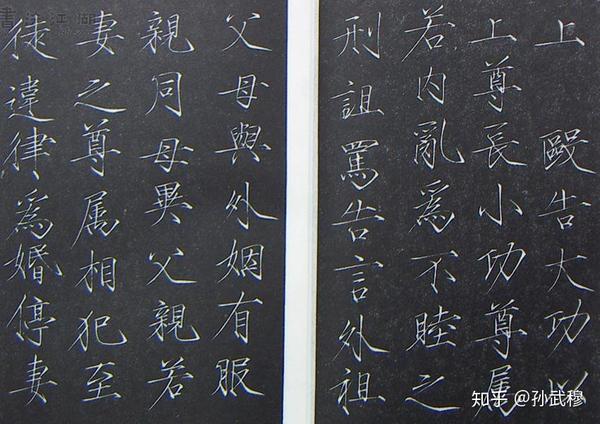 上 毆告大功以
上尊長小功尊属
若内亂爲不睦之
刑詛罵告言外祖
父母與外姻有服
親同母異父親若
妻之尊属相犯至
徒違律爲婚停妻
知乎 @孙武穆